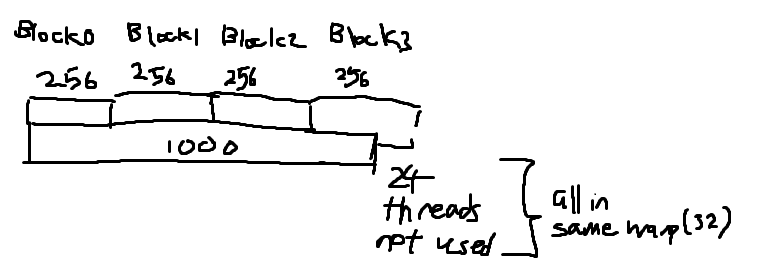 Block0 Block1 Block2 Block3
256 256 256 256
1000
24
threads
not used
all in
same warp(32)